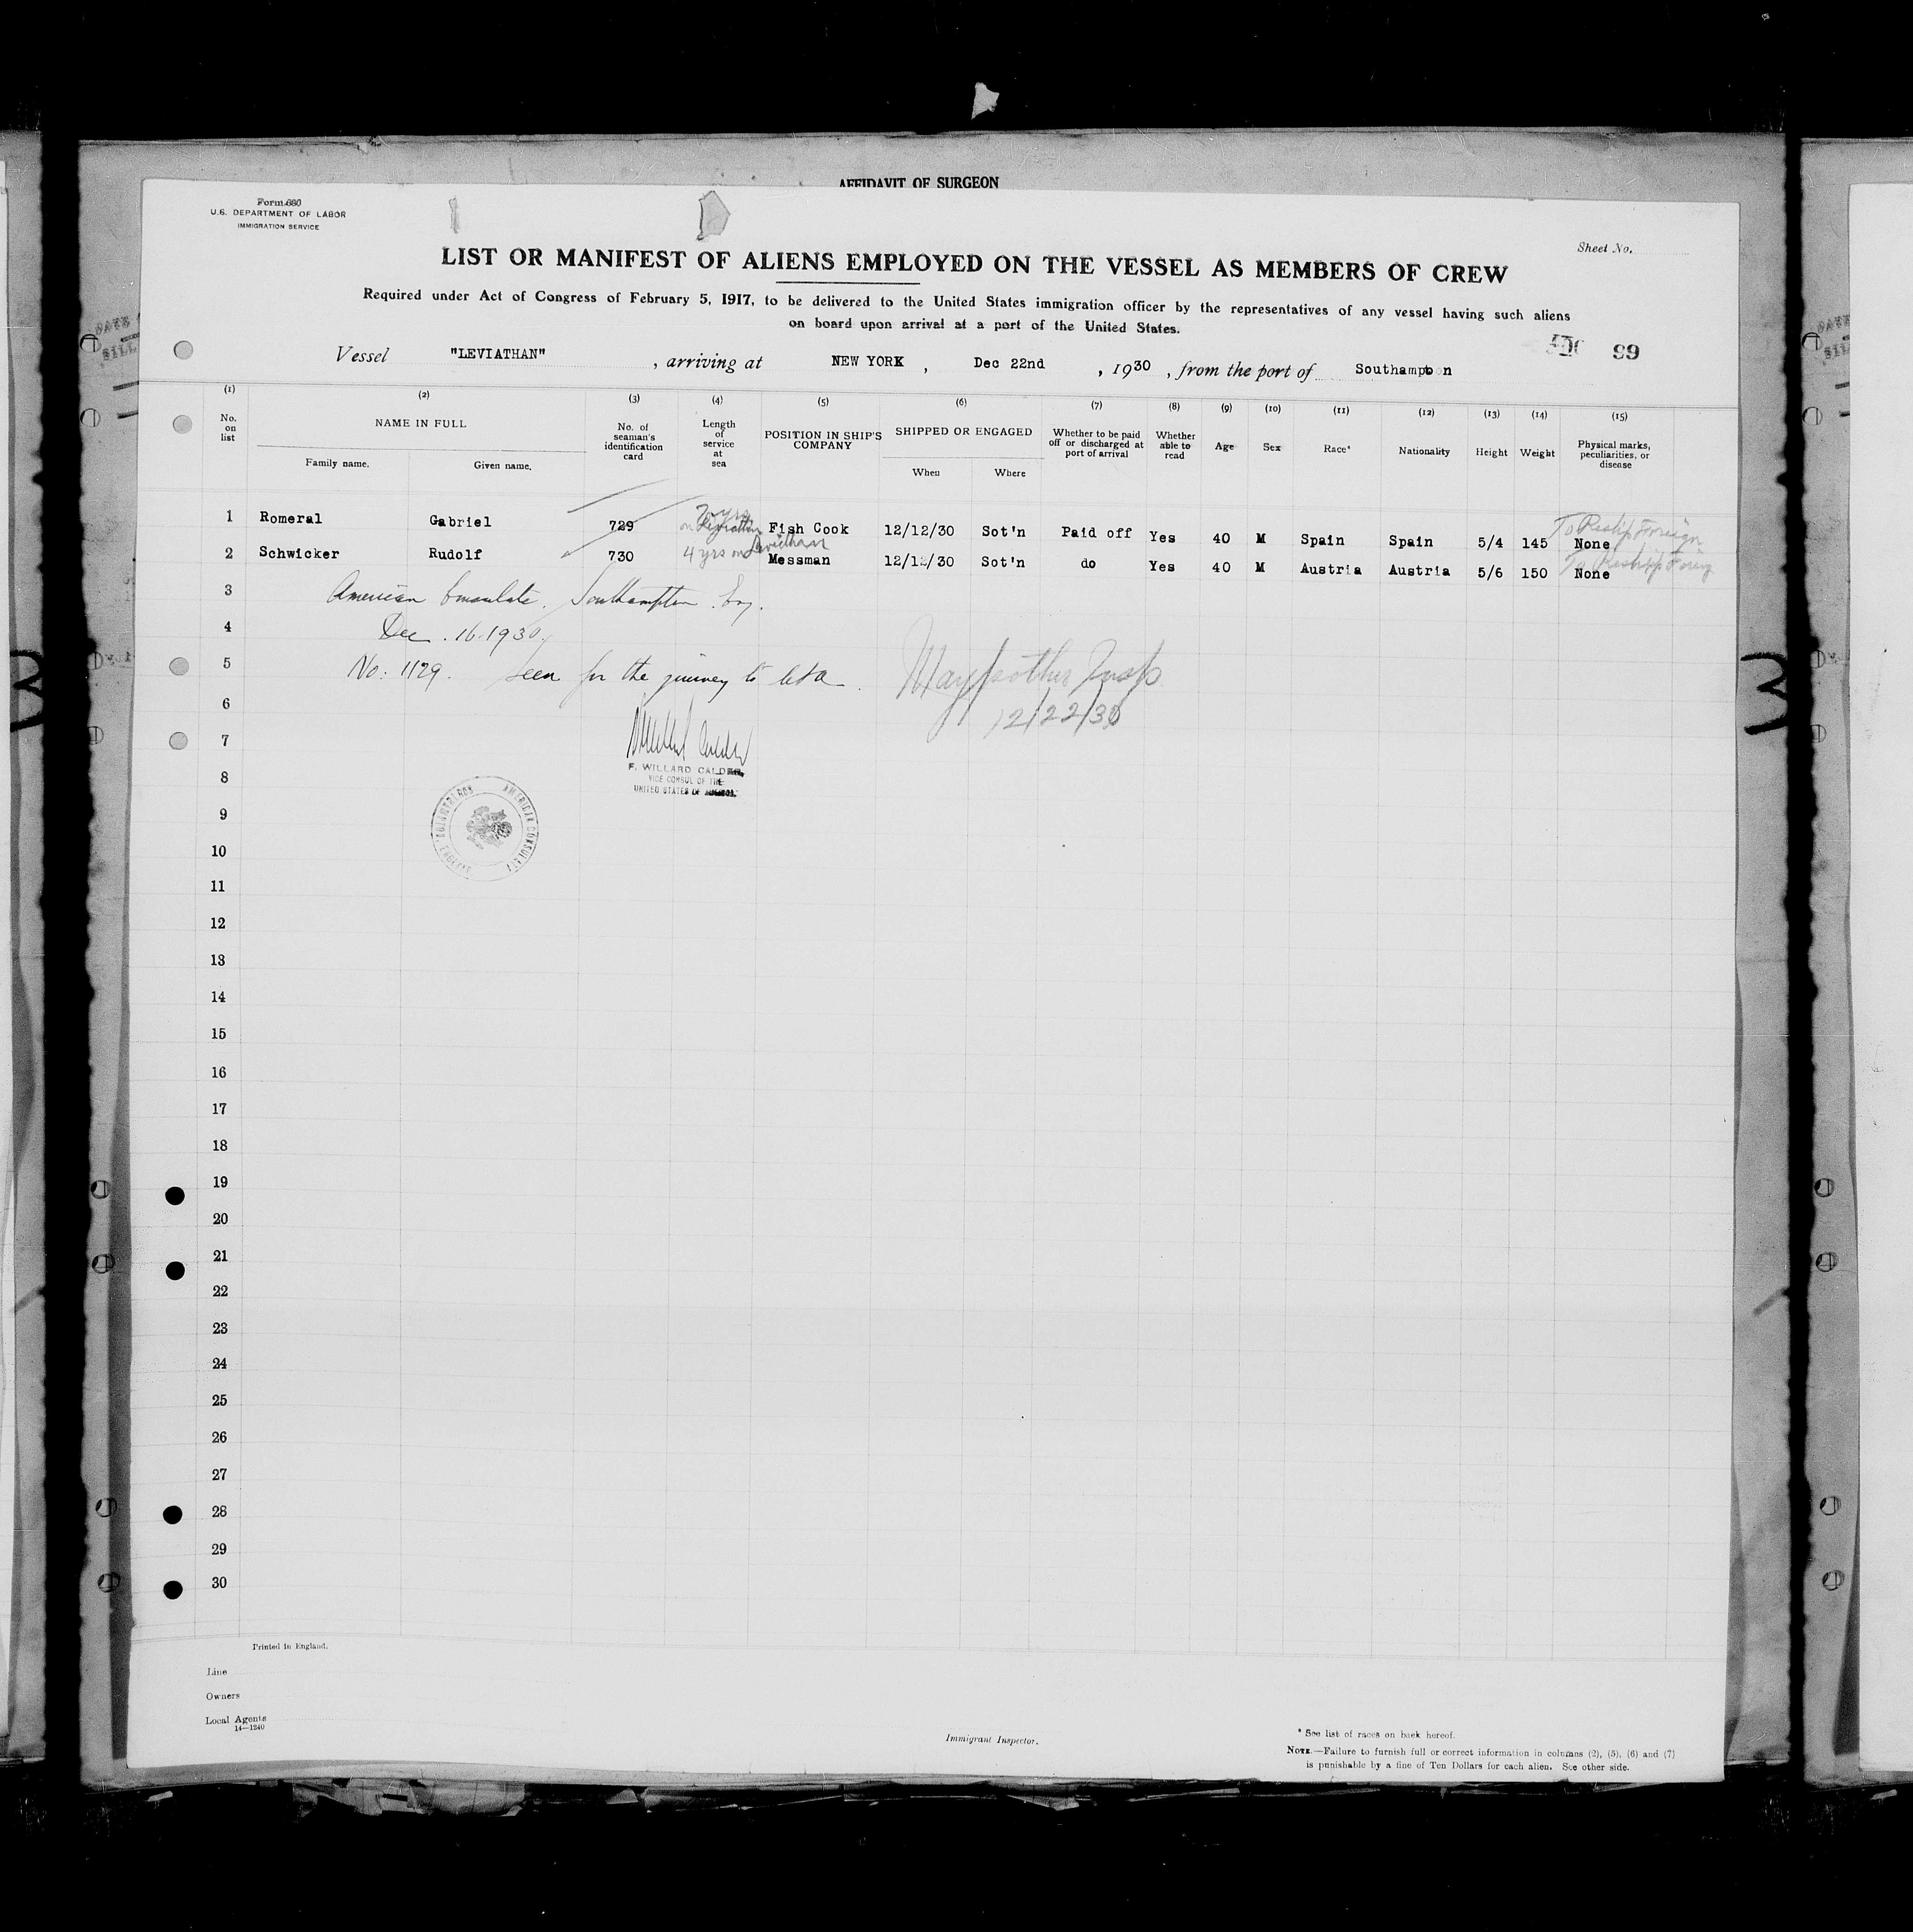 AFFIDAVIT OF SURGEON
Form 680
U.S. DEPARTMENT OF LABOR
IMMIGRATION SERVICE
Sheet No.
LIST OR MANIFEST OF ALIENS EMPLOYED ON THE VESSEL AS MEMBERS OF CREW
Required under Act of Congress of February 5, 1917, to be delivered to the United States immigration officer by the representatives of any vessel having such aliens
on board upon arrival at a port of the United States.
99
Vessel "LEVIATHAN", arriving at NEW YORK, Dec 22nd, 1930, from the port of Southampton
(1) (2) (3) (4) (5) (6) (7) (8) (9) (10) (11) (12) (13) (14) (15)
No. on list NAME IN FULL Family name. Given name. No. of seaman's identification card Length of service at sea POSITION IN SHIP'S COMPANY SHIPPED OR ENGAGED When Where Whether to be paid off or discharged at port of arrival Whether able to read Age Sex Race* Nationality Height Weight Physical marks, peculiarities, or disease
1 Romeral Gabriel 729 yrs on Leviathan Fish Cook 12/12/30 Sot'n Paid off Yes 40 M Spain Spain 5/4 145 None To Reship Foreign
2 Schwicker Rudolf 730 4 yrs on Leviathan Messman 12/12/30 Sot'n do Yes 40 M Austria Austria 5/6 150 None To Reship Foreign
3 American Consulate. Southampton Eng.
4 Dec. 16. 1930.
5 No: 1129. Seen for the journey to USA.
Insp
6 12/22/30
7
F. WILLARD CALDER,
8 VICE CONSUL OF THE
UNITED STATES OF AMERICA.
9
AMERICAN CONSULATE SOUTHAMPTON ENGLAND
10
11
12
13
14
15
16
17
18
19
20
21
22
23
24
25
26
27
28
29
30
Printed in England.
Line
Owners
Local Agents
14—1240
Immigrant Inspector.
* See list of races on back hereof.
NOTE.—Failure to furnish full or correct information in columns (2), (5), (6) and (7)
is punishable by a fine of Ten Dollars for each alien. See other side.